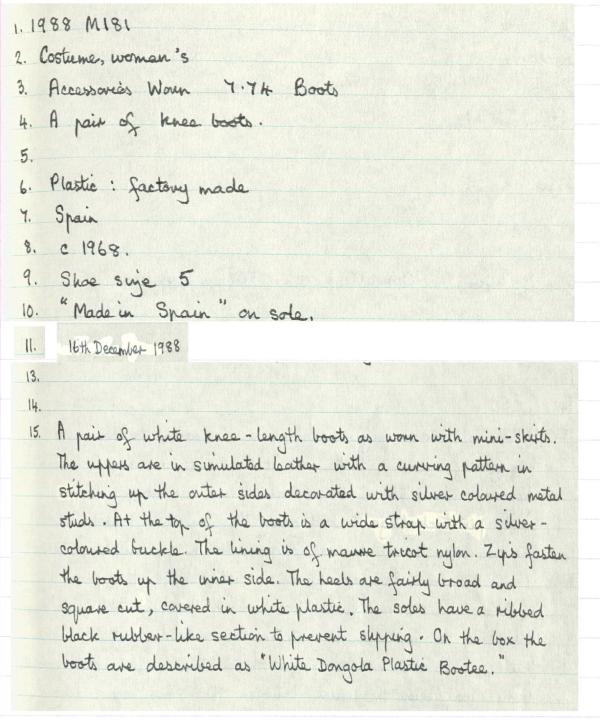 1. 1988 M181
2. Costume, woman's
3. Accessories Worn 7.74 Boots
4. A pair of knee boots.
5.
6. Plastic : factory made
7. Spain
8. c 1968.
9. Shoe size 5
10. "Made in Spain" on sole.
11. 16th December 1988
13.
14.
15. A pair of white knee-length boots as worn with mini-skirts.
The uppers are in simulated leather with a curving pattern in
stitching up the outer sides decorated with silver coloured metal
studs. At the top of the boots is a wide strap with a silver-
coloured buckle. The lining is of mauve tricot nylon. Zips fasten
the boots up the inner side. The heels are fairly broad and
square cut, covered in white plastic. The soles have a ribbed
black rubber-like section to prevent slipping. On the box the
boots are described as "White Dongola Plastic Bootee."